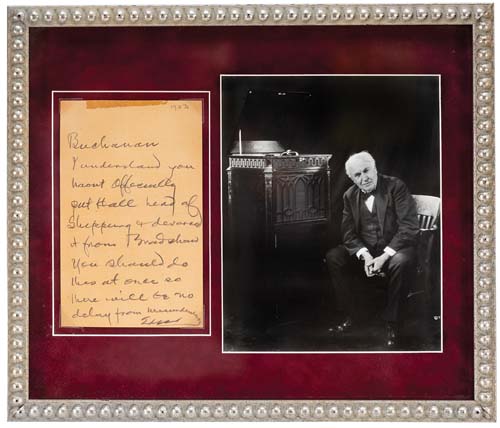 1903
Buchanan
I understand you
havnt Officially
put Hall head of
Shipping &
it from Bradshaw
You should do
this at once so
there will be no
delay from misunderstanding
Edison